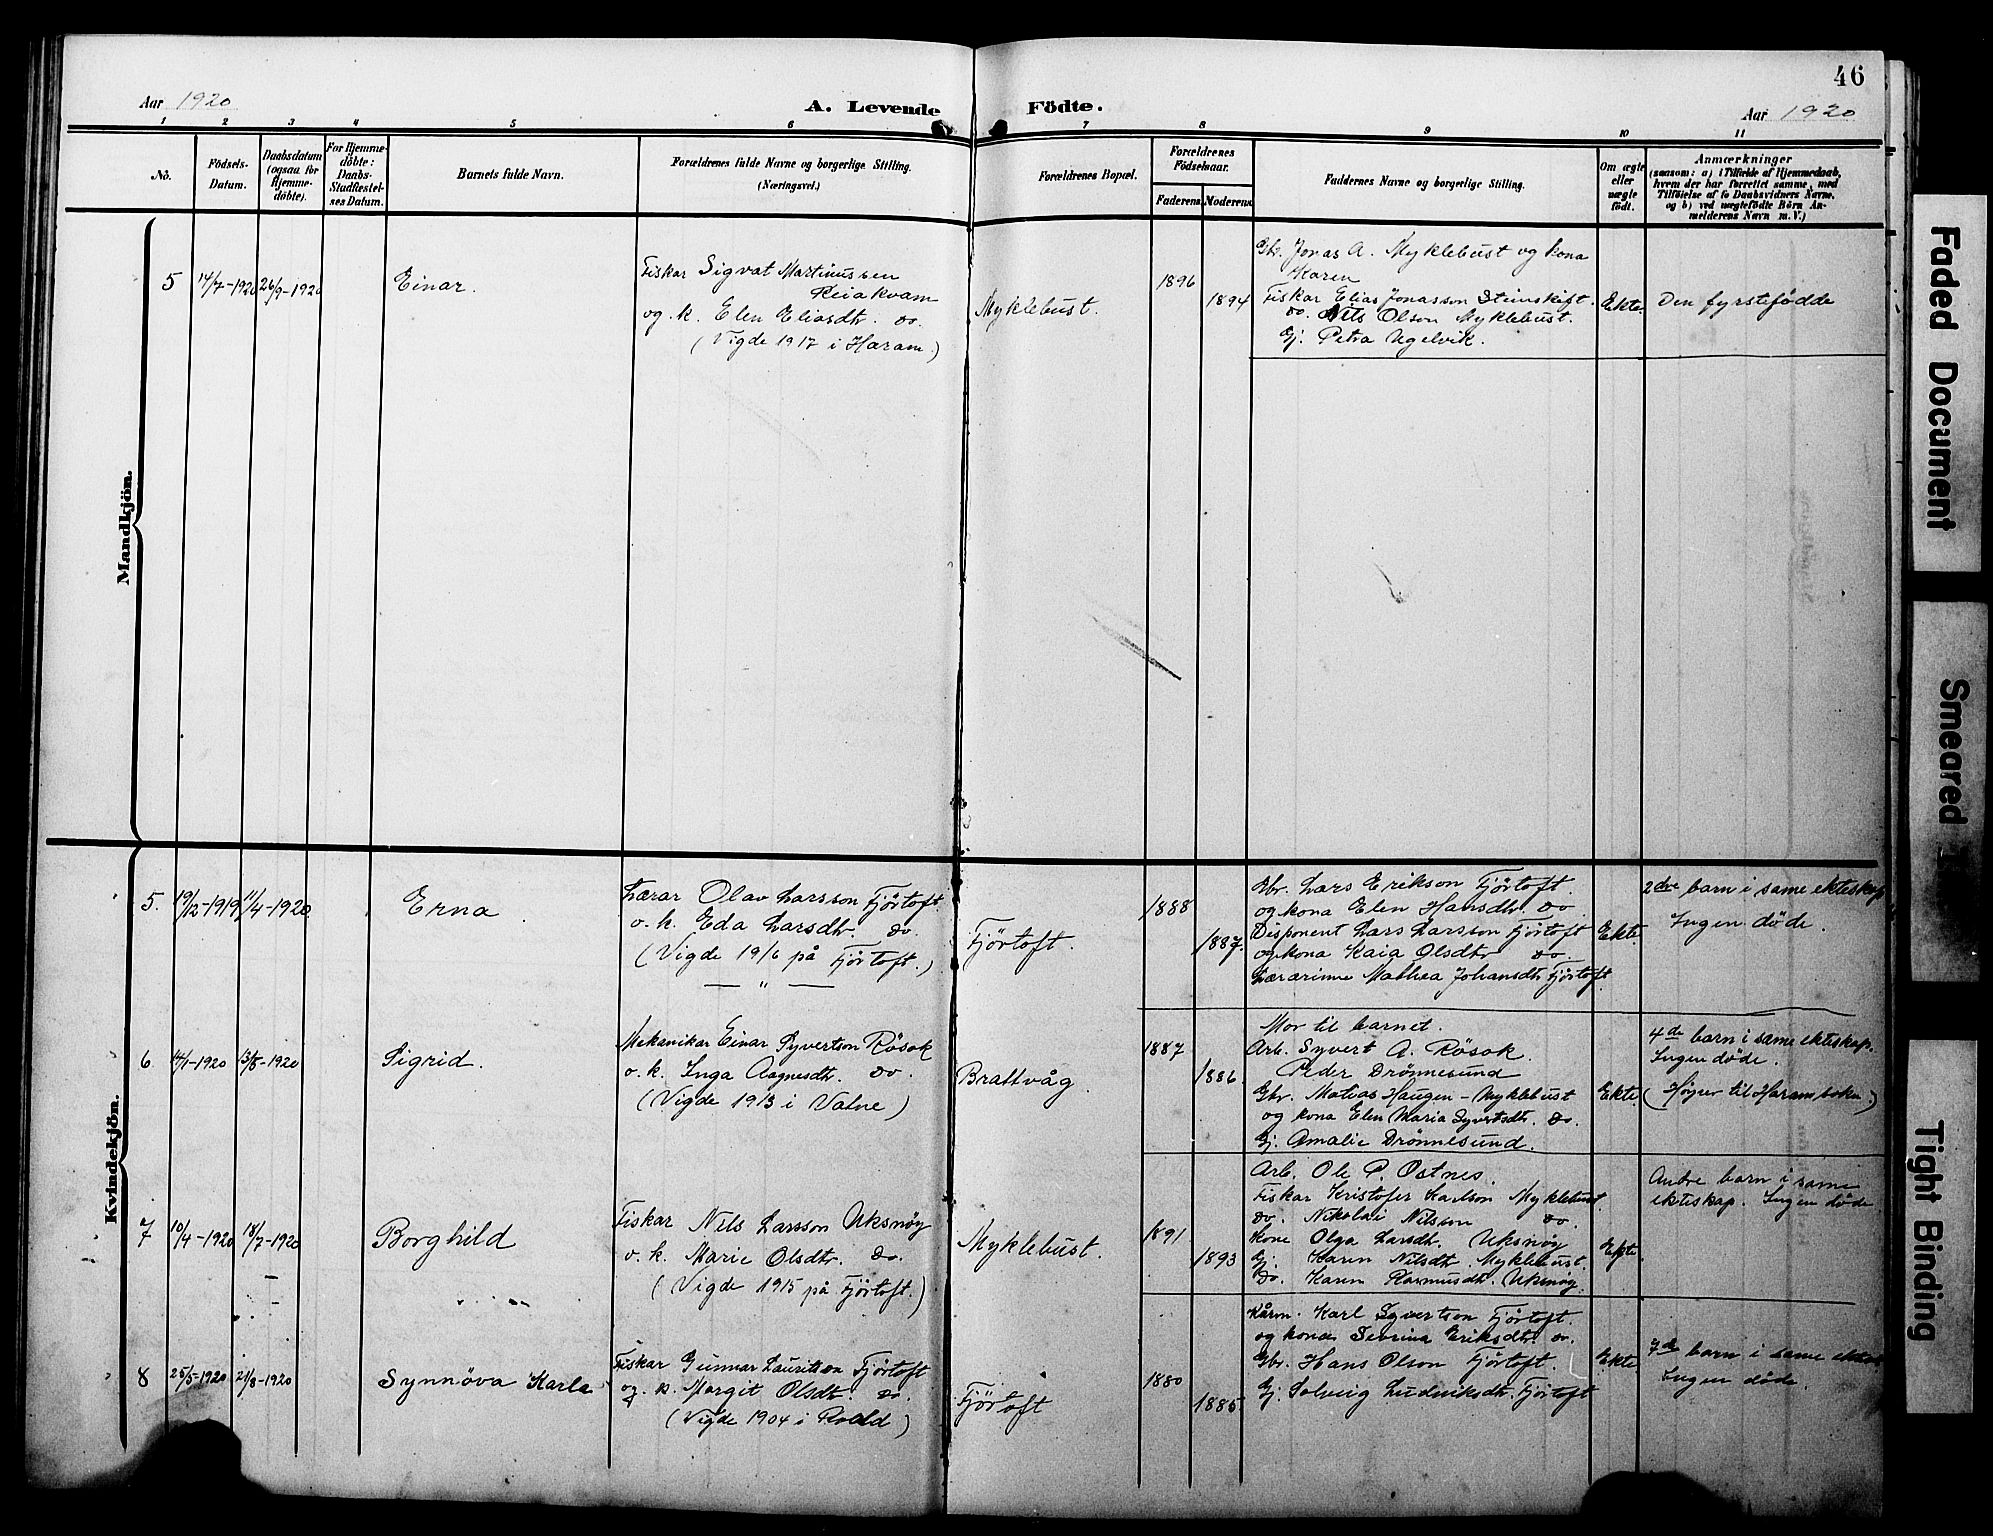 46
Aar 1920
A. Levende Födte.
Aar 1920
1 2 3 4 5 6 7 8 9 10 11
No.
Födsels-
Datum.
Daabsdatum
(ogsaa for
Hjemme-
döbte).
For Hjemme-
döbte:
Daabs-
Stadfæstel-
ses Datum.
Barnets fulde Navn.
Forældrenes fulde Navne og borgerlige Stilling.
(Næringsvei.)
Forældrenes Bopæl.
Forældrenes
Födselsaar.
Faderens. Moderens.
Faddernes Navne og borgerlige Stilling.
Om ægte
eller
uægte
födt.
Anmærkninger
(saasom: a) i Tilfælde af Hjemmedaab,
hvem der har forrettet samme, med
Tilföielse af to Daabsvidners Navne,
og b) ved uægtefödte Börn An-
melderens Navn m. V.)
Mandkjön.
5 14/7-1920 26/9-1920
Einar.
Fiskar Sigvat Martinussen
Reiakvam
og k. Elen Eliasdtr. do.
(Vigde 1917 i Haram.)
Myklebust.
1896
1894
Gbr. Jonas A. Myklebust og kona
Karen
Fiskar Elias Jonasson Steinskift.
do. Nils Olson Myklebust.
Gj. Petra Ugelvik.
Ekte.
Den fyrstefödde
Kvindekjön.
5. 19/12-1919 11/4-1920
Erna.
Lærar Olav Larsson Fjörtoft
o. k. Eda Larsdtr. do.
(Vigde 1916 på Fjörtoft.)
— " —
Fjörtoft.
1888
1887.
Gbr. Lars Erikson Fjörtoft.
og kona Elen Hansdtr. do
Disponent Lars Larsson Fjörtoft
og kona Kaia Olsdtr do.
Lærarinne Mathea Johansdtr Fjörtoft.
Ekte.
2dre barn i same ekteskap
Ingen døde.
6 14/1-1920 13/5-1920
Sigrid.
Mekanikar Einar Syvertson Røsok
o. k. Inga Aagnesdtr. do.
(Vigde 1913 i Vatne)
Brattvåg.
1887
1886.
Mor til barnet.
Arb. Syvert A. Røsok.
Peder Drönnesund
Gbr. Matias Haugen-Myklebust
og kona Elen Maria Syvertsdtr. do.
Gj. Amalie Drönnesund.
Ekte.
4de barn i same ekteskap.
Ingen døde.
(Høyrer til Haramsboka.)
7 10/4-1920 18/7-1920
Borghild
Fiskar Nils Larsson Uksnøy
o. k. Marie Olsdtr. do.
(Vigde 1915 på Fjörtoft.)
Myklebust.
1891
1893
Arb. Ole P. Ostnes.
Fiskar Kristofer Karlson Myklebust.
do. Nikolai Nilsen do.
Kone Olga Larsdtr. Uksnøy
Gj. Karen Nilsdtr. Myklebust.
do. Karen Rasmusdtr. Uksnøy
Ekte.
Andre barn i same
ekteskap. Ingen döde
8 25/5-1920 21/8-1920
Synnöva Karla
Fiskar Gunnar Lauritson Fjörtoft
og k. Margit Olsdtr. do.
(Vigde 1904 i Roald)
Fjörtoft
1880
1885.
Karl Syvertson Fjörtoft.
og kona Sevrina Eriksdtr. do.
Gbr. Hans Olson Fjörtoft.
Gj. Solveig Ludviksdtr. Fjörtoft
Ekte
7de barn i same
Ingen døde.
Faded Document
Smeared
Tight Binding